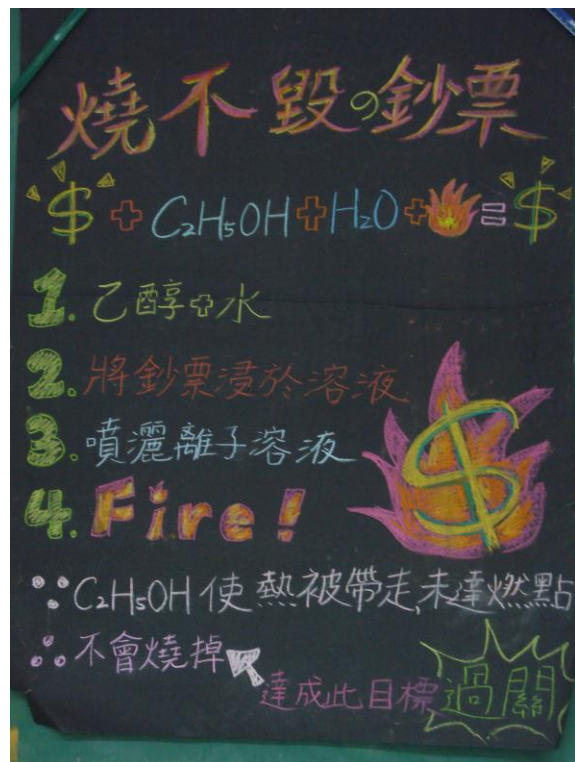 燒不毀の鈔票
$ + C₂H₅OH + H₂O + = $
1. 乙醇+水
2. 將鈔票浸於溶液
3. 噴灑離子溶液
4. Fire!
$
∵ C₂H₅OH 使熱被帶走,未達燃點
∴ 不會燒掉
達成此目標過關